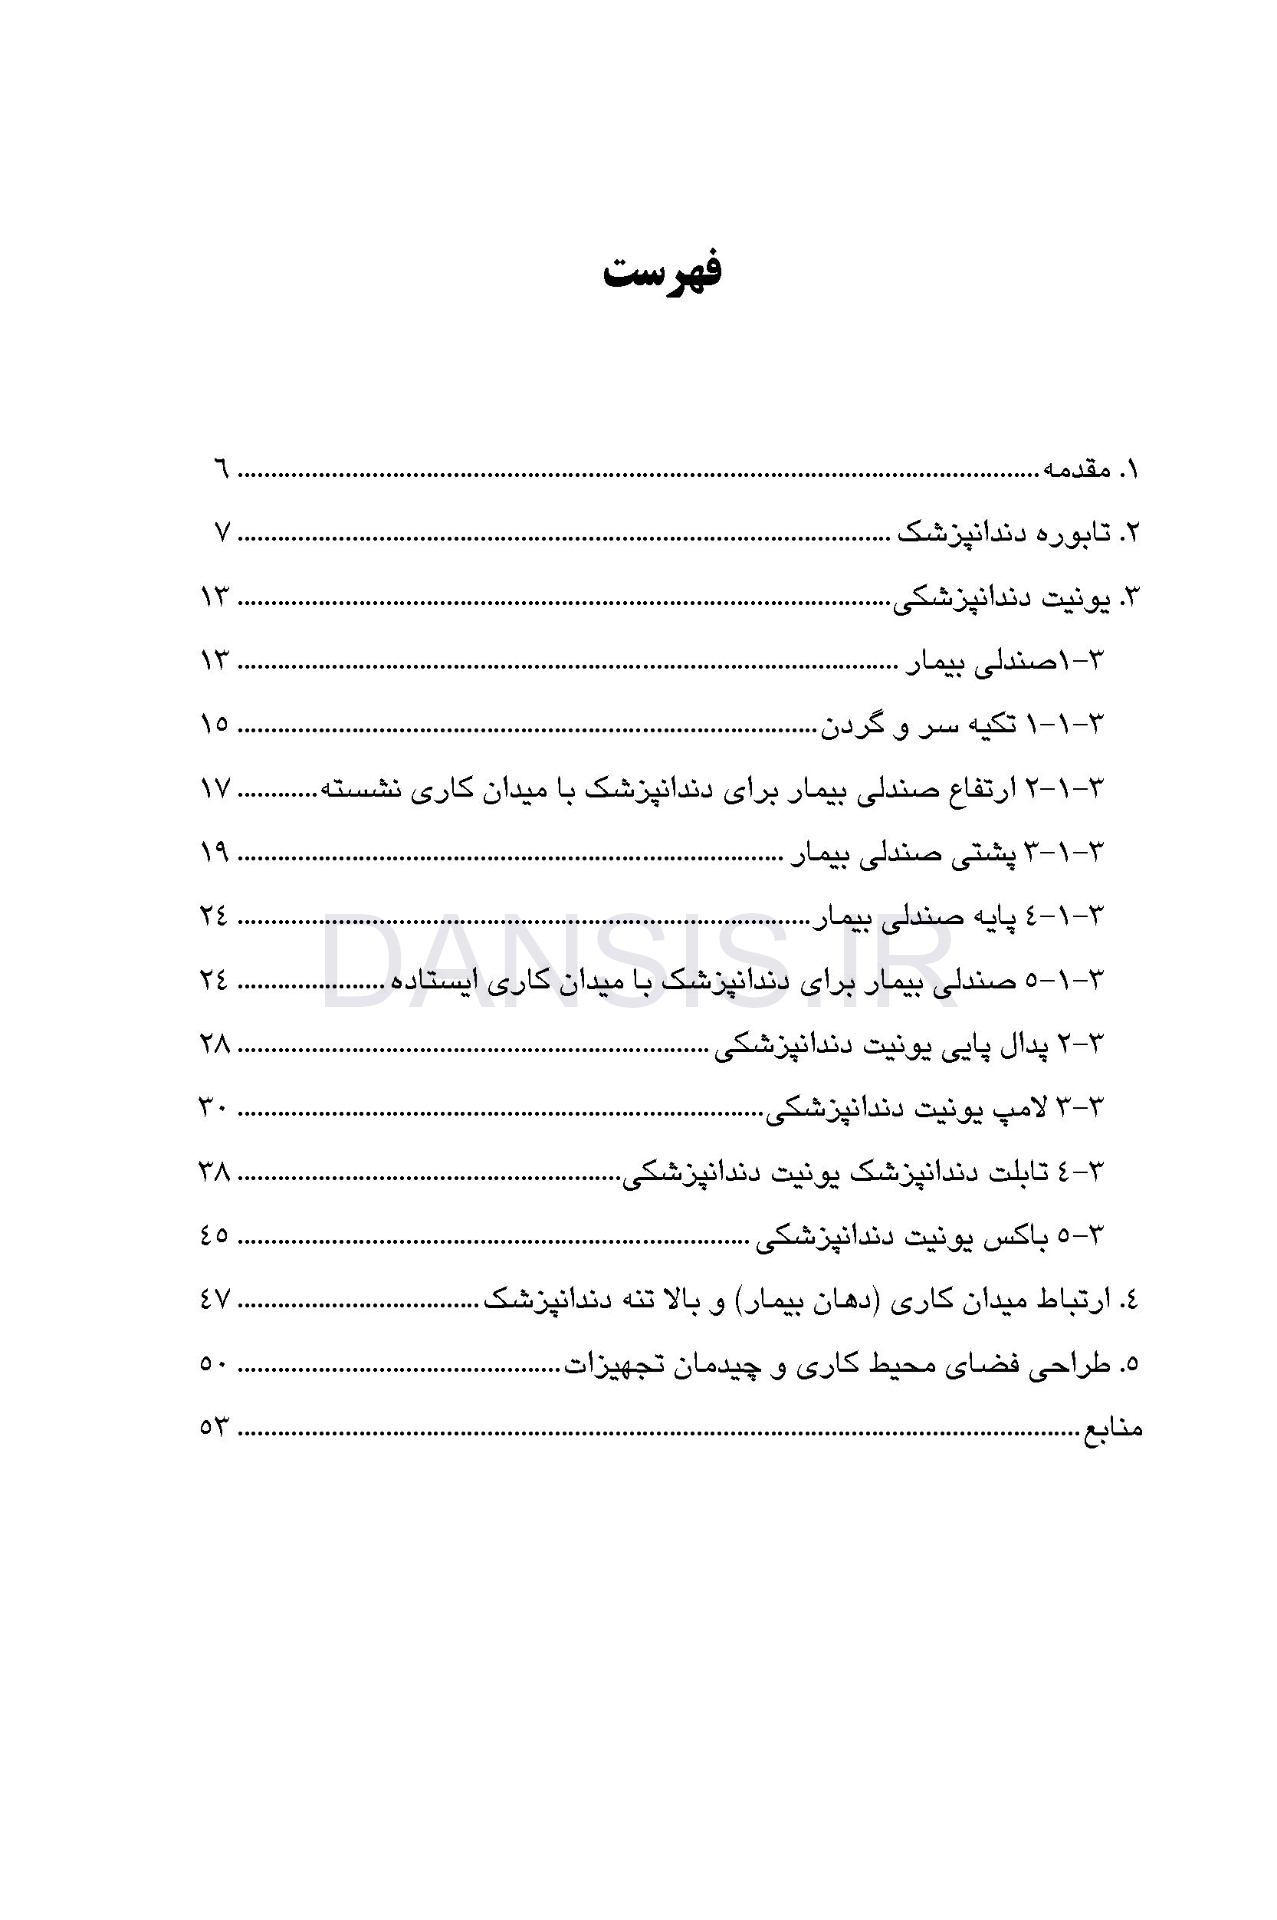 فهرست
۱. مقدمه ........................................ ٦
۲. تابوره دندانپزشک ........................................ ۷
۳. یونیت دندانپزشکی ........................................ ۱۳
۳-۱صندلی بیمار ........................................ ۱۳
۳-۱-۱ تکیه سر و گردن ........................................ ۱٥
۳-۱-۲ ارتفاع صندلی بیمار برای دندانپزشک با میدان کاری نشسته ............ ۱۷
۳-۱-۳ پشتی صندلی بیمار ........................................ ۱۹
۳-۱-٤ پایه صندلی بیمار ........................................ ۲٤
DANSIS.IR
۳-۱-٥ صندلی بیمار برای دندانپزشک با میدان کاری ایستاده ...................... ۲٤
۳-۲ پدال پایی یونیت دندانپزشکی ........................................ ۲۸
۳-۳ لامپ یونیت دندانپزشکی ........................................ ۳۰
۳-٤ تابلت دندانپزشک یونیت دندانپزشکی ........................................ ۳۸
۳-٥ باکس یونیت دندانپزشکی ........................................ ٤٥
٤. ارتباط میدان کاری (دهان بیمار) و بالا تنه دندانپزشک .................................... ٤۷
٥. طراحی فضای محیط کاری و چیدمان تجهیزات ........................................ ٥۰
منابع ........................................ ٥۳